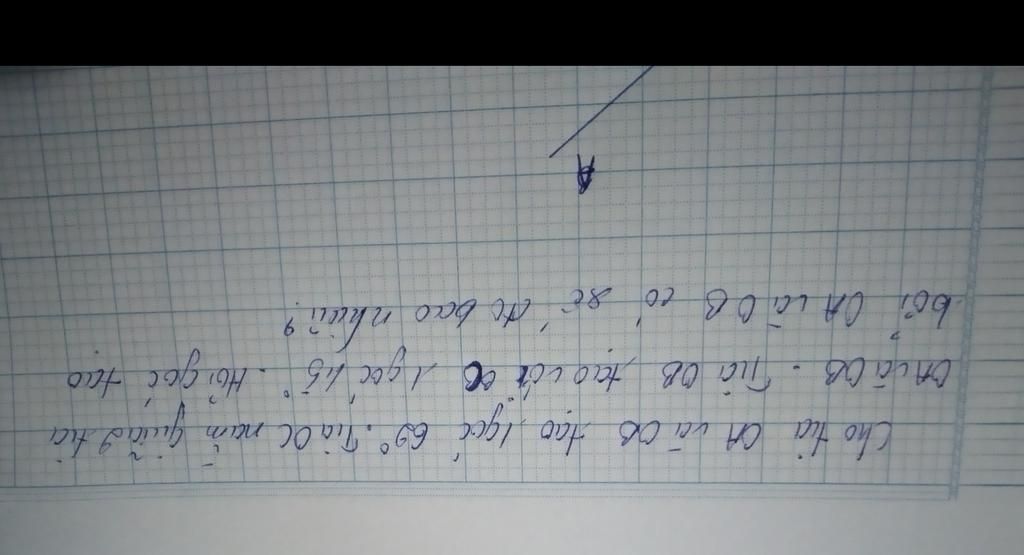 Cho tia OA và OB tạo 1 góc 69°. Tia OC nằm giữa 2 tia
OA và OB. Tia OB tạo với OC 1 góc 45°. Hỏi góc tạo
bởi OA và OB có số đo bao nhiêu?
A